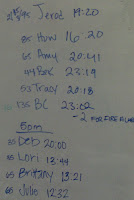 Jered 19:20
85 Huw 16:20
65 Amy 20:41
23:19
53 Tracy 20:18
135 BC 23:02
-2 FOR
50m
35 Deb 20:00
35 Lori 13:44
65 Brittany 13:21
65 Julie 12:32